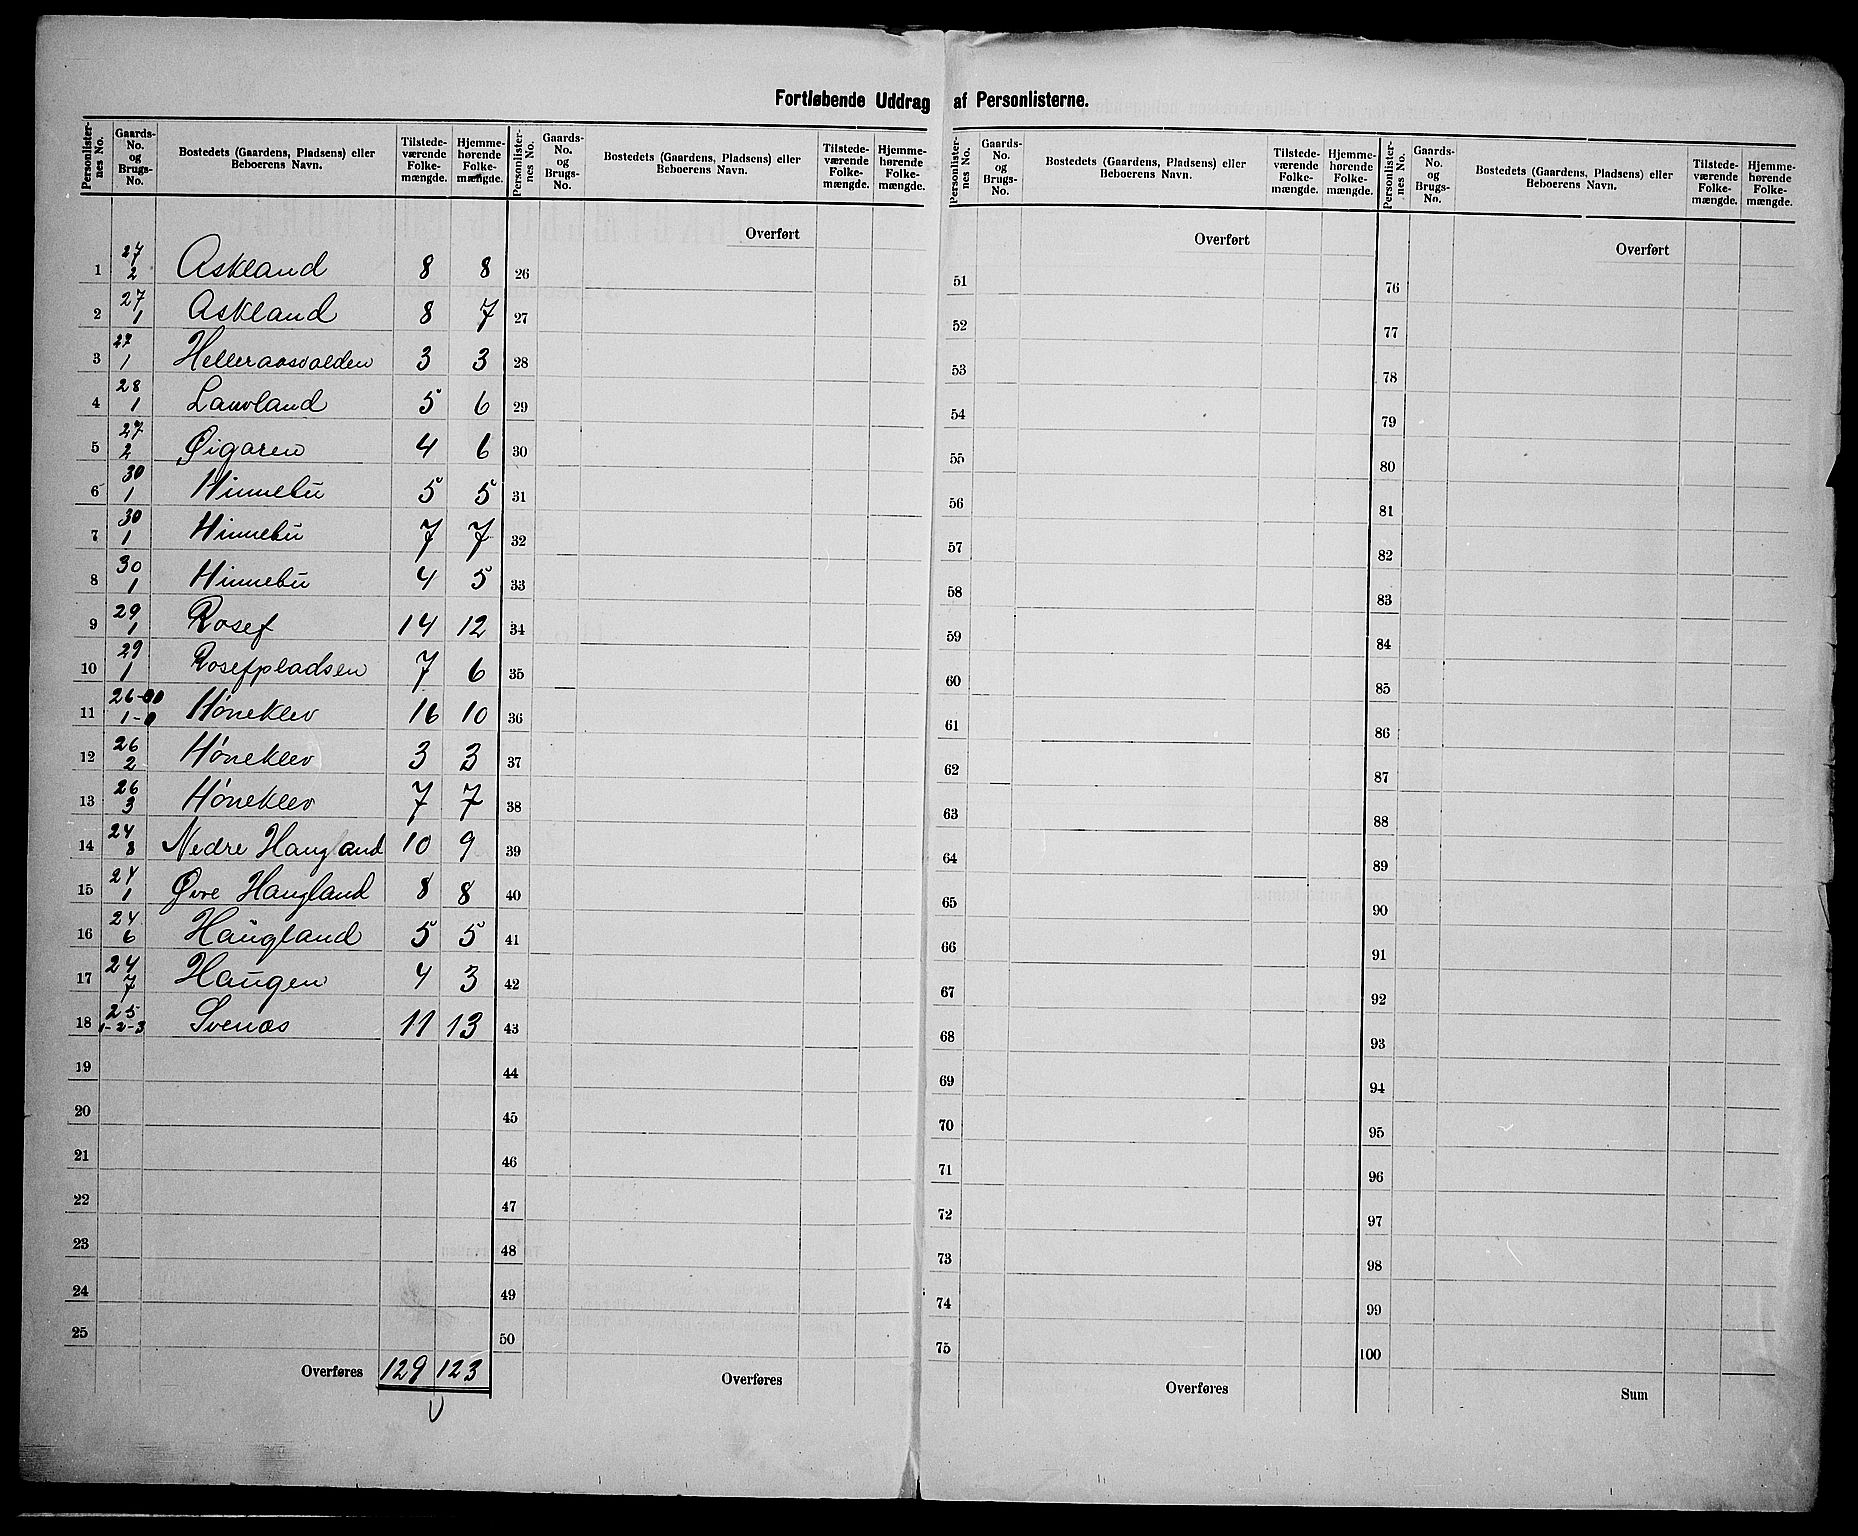 Fortløbende Uddrag af Personlisterne.
Personlister-nes No. | Gaards-No. og Brugs-No. | Bostedets (Gaardens, Pladsens) eller Beboerens Navn. | Tilstede-værende Folke-mængde. | Hjemme-hørende Folke-mængde. | Personlister-nes No. | Gaards-No. og Brugs-No. | Bostedets (Gaardens, Pladsens) eller Beboerens Navn. | Tilstede-værende Folke-mængde. | Hjemme-hørende Folke-mængde. | Personlister-nes No. | Gaards-No. og Brugs-No. | Bostedets (Gaardens, Pladsens) eller Beboerens Navn. | Tilstede-værende Folke-mængde. | Hjemme-hørende Folke-mængde. | Personlister-nes No. | Gaards-No. og Brugs-No. | Bostedets (Gaardens, Pladsens) eller Beboerens Navn. | Tilstede-værende Folke-mængde. | Hjemme-hørende Folke-mængde.
Overført Overført Overført
1 27/2 Askland 8 8 26 51 76
2 27/1 Askland 8 7 27 52 77
3 27/1 Helleraasvolden 3 3 28 53 78
4 28/1 Lauvland 5 6 29 54 79
5 27/2 Øigaren 4 6 30 55 80
6 30/1 Hinnebu 5 5 31 56 81
7 30/1 Hinnebu 7 7 32 57 82
8 30/1 Hinnebu 4 5 33 58 83
9 29/1 Rosef 14 12 34 59 84
10 29/1 Rosefpladsen 7 6 35 60 85
11 26/1 Høneklev 16 10 36 61 86
12 26/2 Høneklev 3 3 37 62 87
13 26/3 Høneklev 7 7 38 63 88
14 24/8 Nedre Haugland 10 9 39 64 89
15 24/1 Øvre Haugland 8 8 40 65 90
16 24/6 Haugland 5 5 41 66 91
17 24/7 Haugen 4 3 42 67 92
18 25/1-2-3 Svenæs 11 13 43 68 93
19 44 69 94
20 45 70 95
21 46 71 96
22 47 72 97
23 48 73 98
24 49 74 99
25 50 75 100
Overføres 129 123 Overføres Overføres Sum